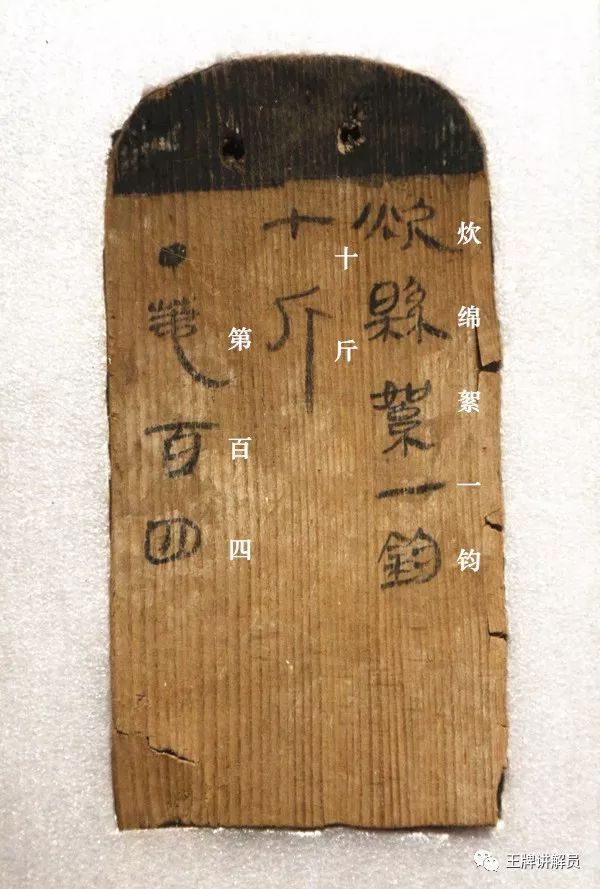 炊緜絮一鈞
炊绵絮一钧
十斤
十斤
·第百四
第百四
王牌讲解员